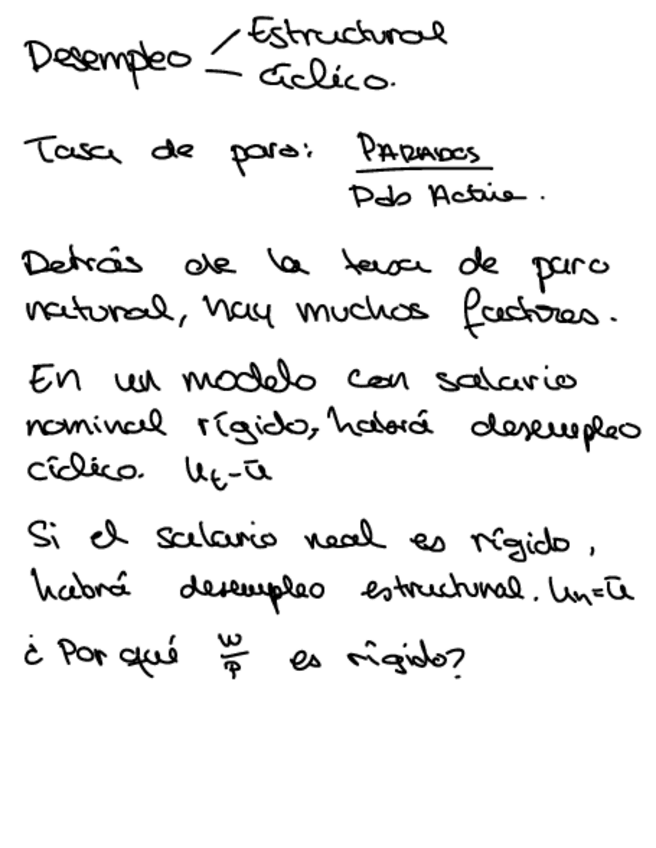 Desempleo Estructural
Cíclico.
Tasa de paro: PARADOS
Pob Activa.
Detrás de la tasa de paro
natural, hay muchos factores.
En un modelo con salario
nominal rígido, habrá desempleo
cíclico. u_t - ū
Si el salario real es rígido,
habrá desempleo estructural. u_n = ū
¿Por qué W/P es rígido?